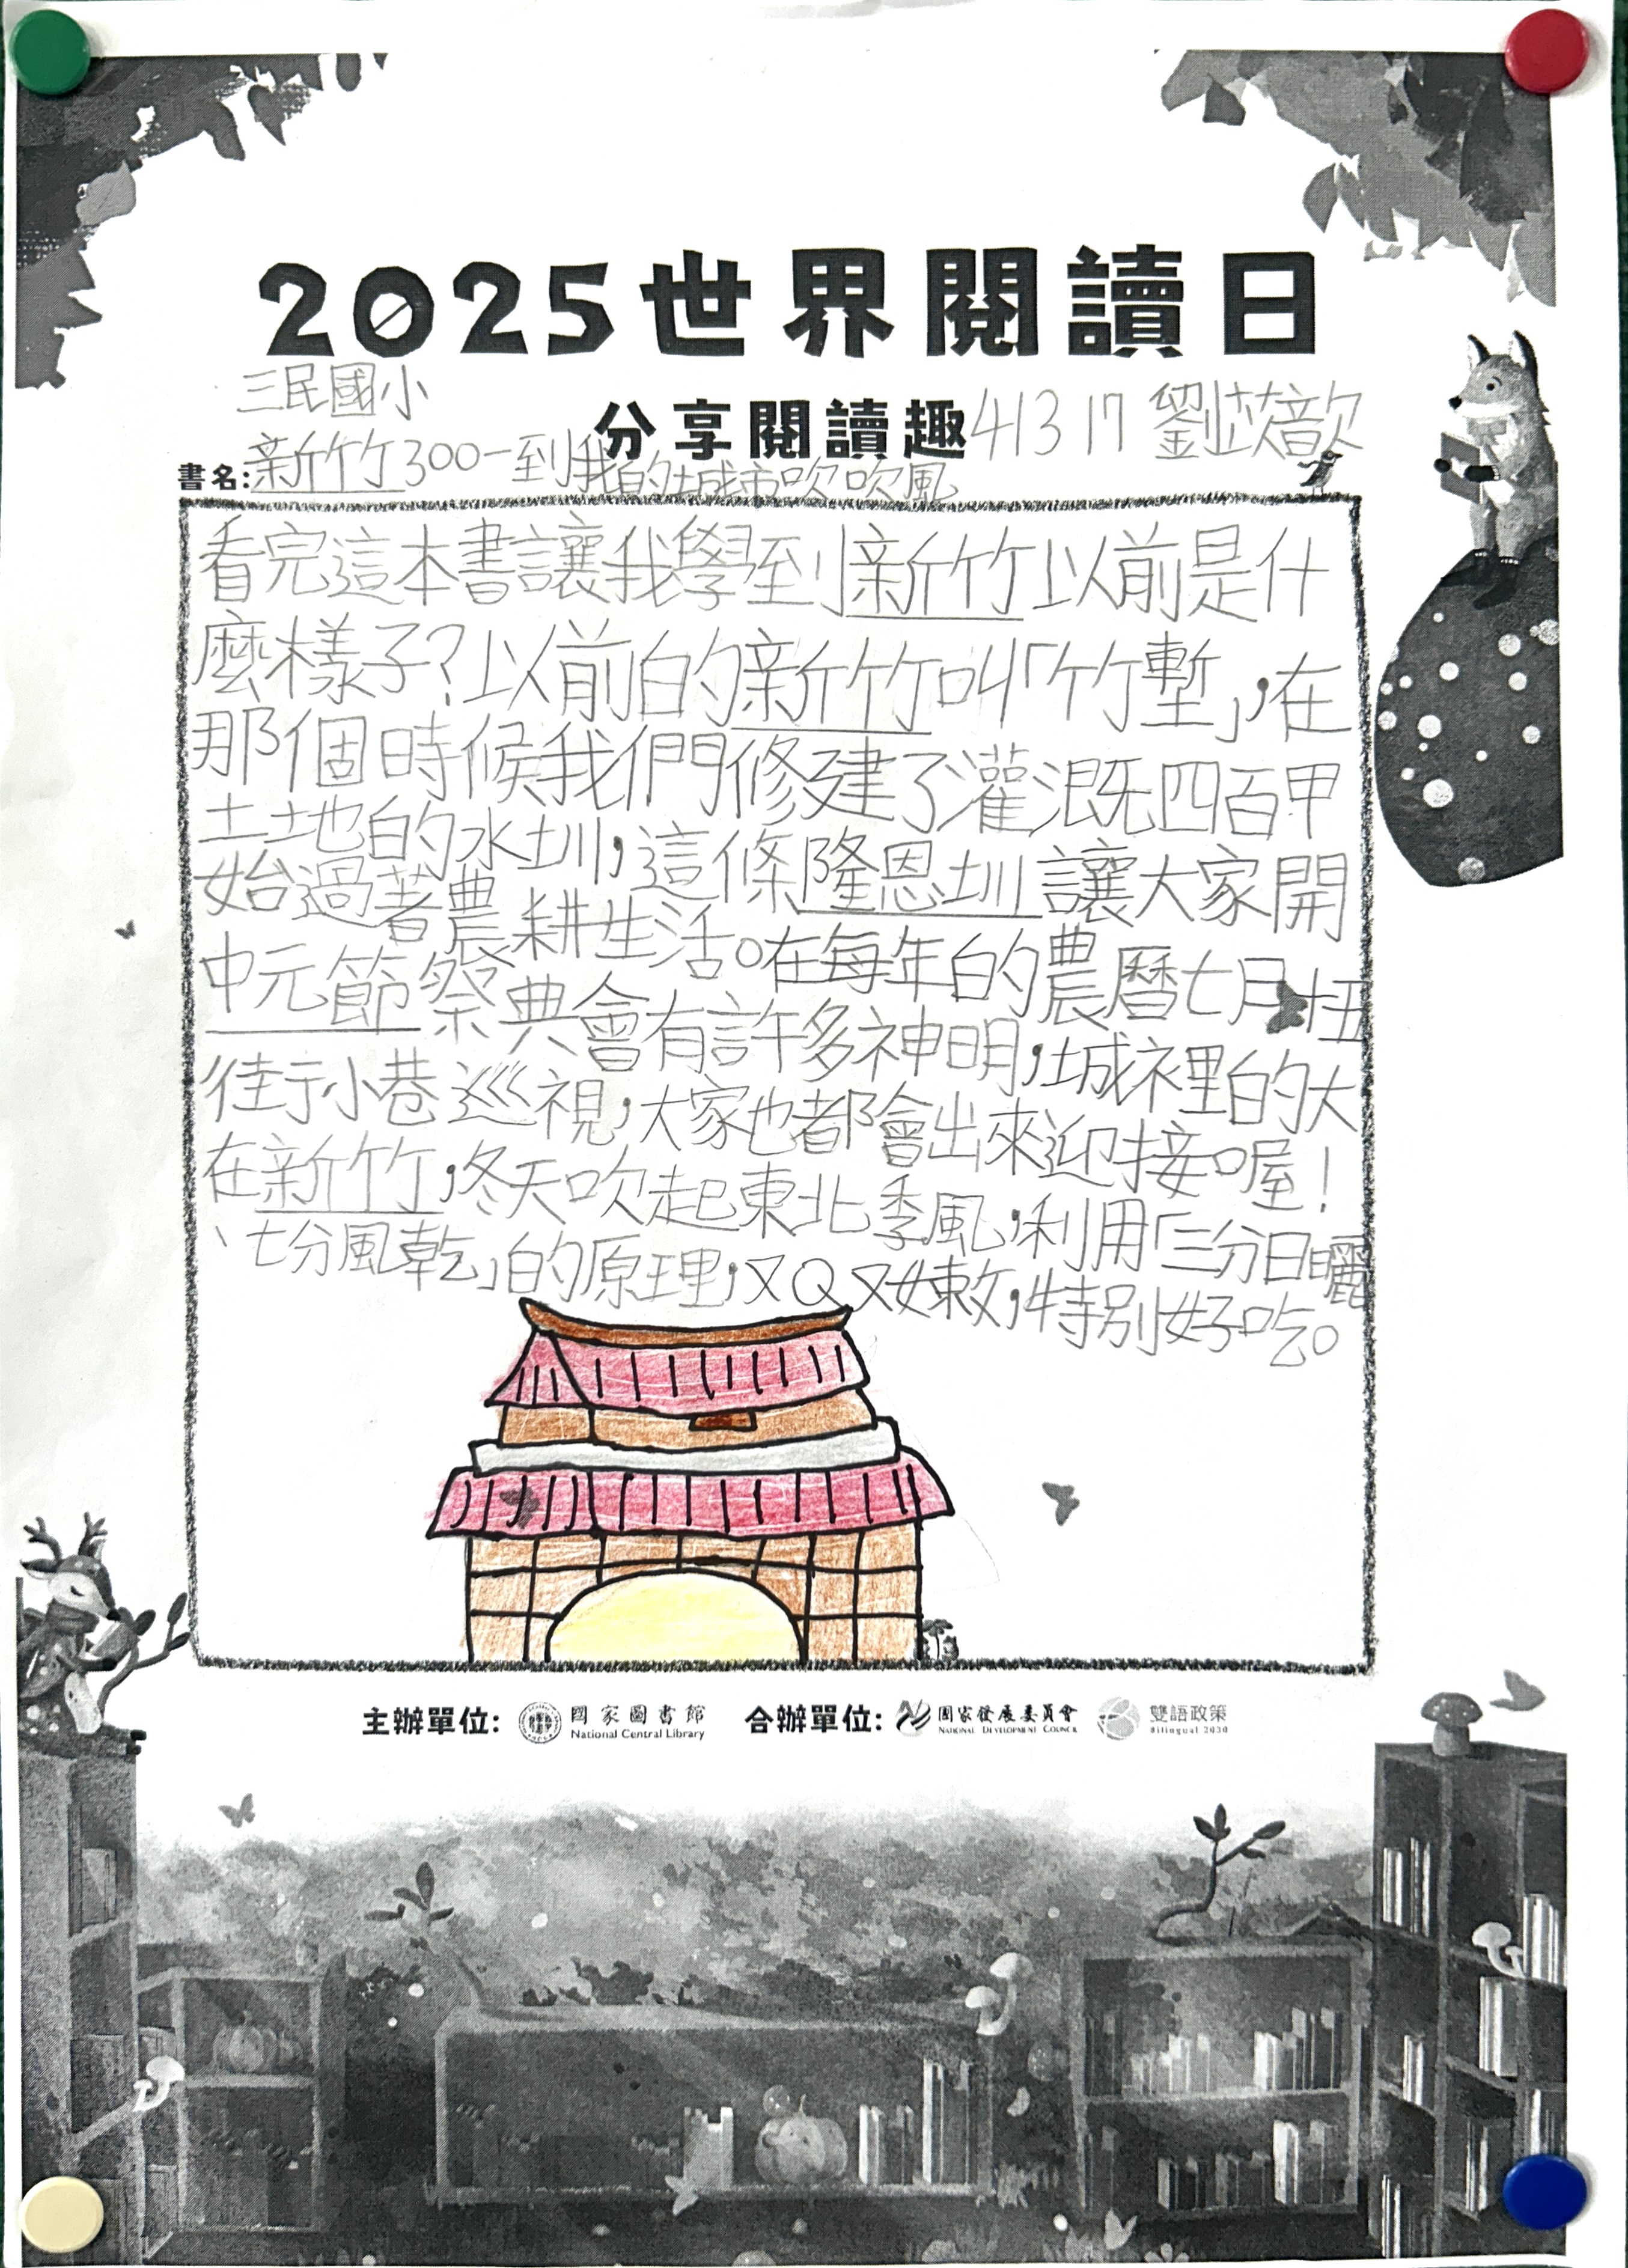 2025世界閱讀日
三民國小
分享閱讀趣 413 17 劉芷歆
書名:新竹300-到我的城市吹吹風
看完這本書讓我學到新竹以前是什
麼樣子?以前的新竹叫「竹塹」,在
那個時候我們修建了灌溉四百甲
土地的水圳,這條隆恩圳讓大家開
始過著農耕生活。在每年的農曆七月
中元節祭典會有許多神明,城裡的大
街小巷巡視,大家也都會出來迎接喔!
在新竹,冬天吹起東北季風,利用「三分日曬
、七分風乾」的原理,又Q又嫩,特別好吃。
主辦單位: 國家圖書館 National Central Library 合辦單位: 國家發展委員會 National Development Council 雙語政策 Bilingual 2030